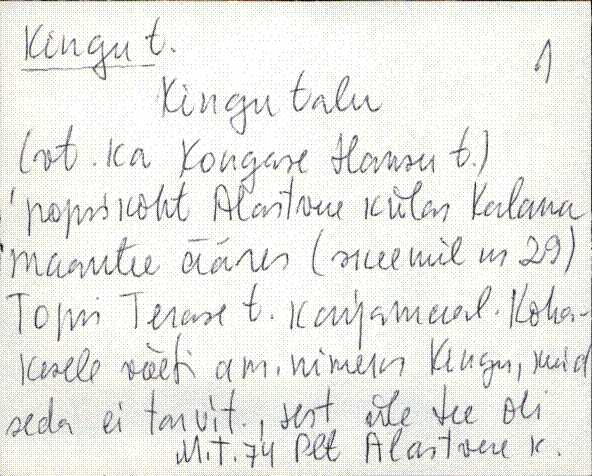 Kingu t.
1
Kingu talu
(vt. ka Kongase Hansu t.)
popsikoht Alastvere külas Kalana
maantee ääres (skeemil nr 29)
Topsi Terase t. karjamaal. Koha-
kesele võeti am. nimeks Kingu, kuid
seda ei tarvit., sest üle tee oli
M.T. 74 Plt Alastvere k.